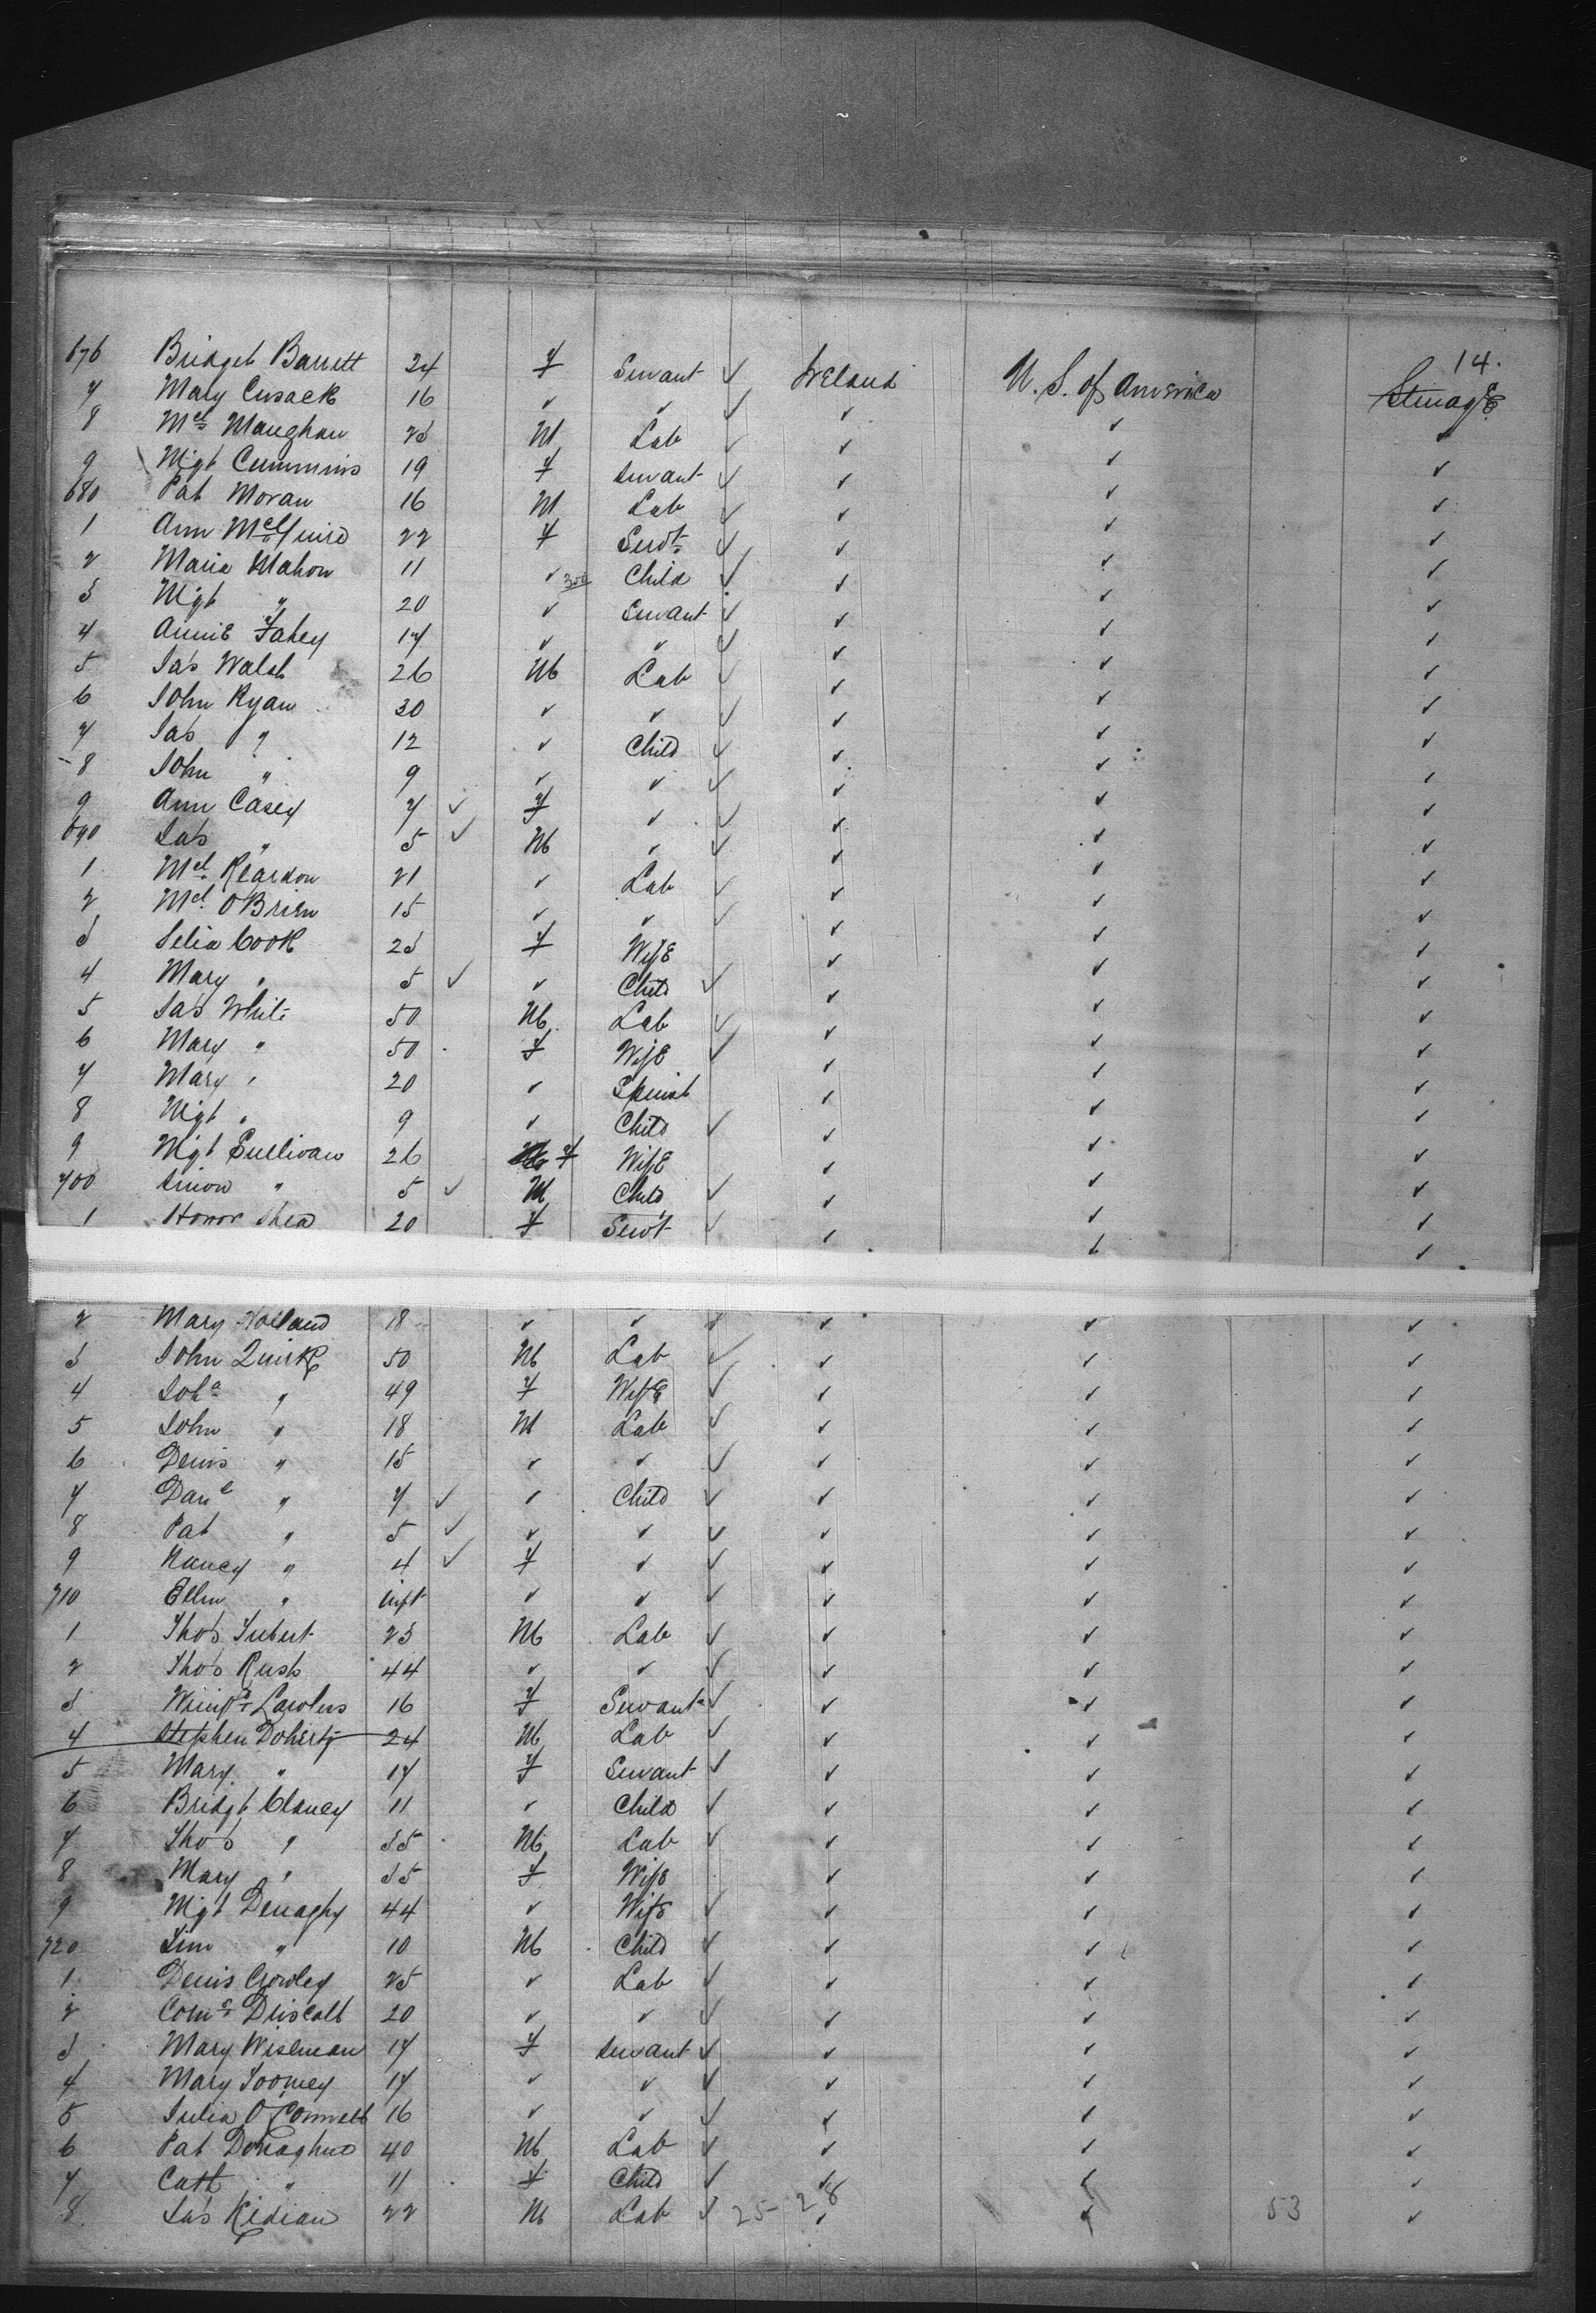 14.
676 Bridget Barrett 24 F Servant ✓ Ireland U. S. of America Steerage
7 Mary Cusack 16 ✓ ✓ ✓ ✓ ✓ ✓
8 Mcl Maughan 23 M Lab ✓ ✓ ✓ ✓
9 Mgt Cummins 19 F Servant ✓ ✓ ✓ ✓
680 Pat Moran 16 M Lab ✓ ✓ ✓ ✓
1 Ann 22 F Servt ✓ ✓ ✓ ✓
2 Maria Mahon 11 ✓ Child ✓ ✓ ✓ ✓
3 Mgt " 20 ✓ Servant ✓ ✓ ✓ ✓
4 Annie Fahey 17 ✓ ✓ ✓ ✓ ✓ ✓
5 Jas Walsh 26 M Lab ✓ ✓ ✓ ✓
6 John Ryan 30 ✓ ✓ ✓ ✓ ✓ ✓
7 Jas " 12 ✓ Child ✓ ✓ ✓ ✓
8 John " 9 ✓ ✓ ✓ ✓ ✓ ✓
9 Ann Casey 7 ✓ F ✓ ✓ ✓ ✓ ✓
690 Jas " 5 ✓ M ✓ ✓ ✓ ✓ ✓
1 Mcl Reardon 21 ✓ Lab ✓ ✓ ✓ ✓
2 Mcl O'Brien 15 ✓ ✓ ✓ ✓ ✓ ✓
3 Selia Cook 23 F Wife ✓ ✓ ✓
4 Mary " 5 ✓ ✓ Child ✓ ✓ ✓ ✓
5 Jas White 50 M Lab ✓ ✓ ✓ ✓
6 Mary " 50 F Wife ✓ ✓ ✓ ✓
7 Mary " 20 ✓ Spinst ✓ ✓ ✓
8 Mgt " 9 ✓ Child ✓ ✓ ✓ ✓
9 Mgt Sullivan 26 F Wife ✓ ✓ ✓
700 Simon " 5 ✓ M Child ✓ ✓ ✓ ✓
1 Honor Shea 20 F Servt ✓ ✓ ✓ ✓
2 Mary Holland 18 ✓ ✓ ✓ ✓ ✓ ✓
3 John Quirke 50 M Lab ✓ ✓ ✓ ✓
4 Joha " 49 F Wife ✓ ✓ ✓ ✓
5 John " 18 M Lab ✓ ✓ ✓ ✓
6 Denis " 15 ✓ ✓ ✓ ✓ ✓ ✓
7 Danl " 7 ✓ ✓ Child ✓ ✓ ✓ ✓
8 Pat " 5 ✓ ✓ ✓ ✓ ✓ ✓ ✓
9 Nancy " 4 ✓ F ✓ ✓ ✓ ✓ ✓
710 Ellen " inft ✓ ✓ ✓ ✓ ✓ ✓
1 Thos 23 M Lab ✓ ✓ ✓ ✓
2 Thos Rush 44 ✓ ✓ ✓ ✓ ✓ ✓
3 Lawless 16 F Servant ✓ ✓ ✓ ✓
4 Stephen Doherty 24 M Lab ✓ ✓ ✓ ✓
5 Mary " 17 F Servant ✓ ✓ ✓ ✓
6 Bridgt Clancy 11 ✓ Child ✓ ✓ ✓ ✓
7 Thos " 35 M Lab ✓ ✓ ✓ ✓
8 Mary " 35 F Wife ✓ ✓ ✓
9 Mgt Denaghy 44 ✓ Wife ✓ ✓ ✓ ✓
720 Tim " 10 M Child ✓ ✓ ✓ ✓
1 Denis Crowley 25 ✓ Lab ✓ ✓ ✓ ✓
2 Corns Driscoll 20 ✓ ✓ ✓ ✓ ✓ ✓
3 Mary Wiseman 17 F Servant ✓ ✓ ✓ ✓
4 Mary Toomey 17 ✓ ✓ ✓ ✓ ✓ ✓
5 Julia O'Connell 16 ✓ ✓ ✓ ✓ ✓ ✓
6 Pat Donaghue 40 M Lab ✓ ✓ ✓ ✓
7 Cath " 11 F Child ✓ ✓ ✓ ✓
8 Jas Kidian 22 M Lab ✓ 25 28 ✓ ✓ 53 ✓